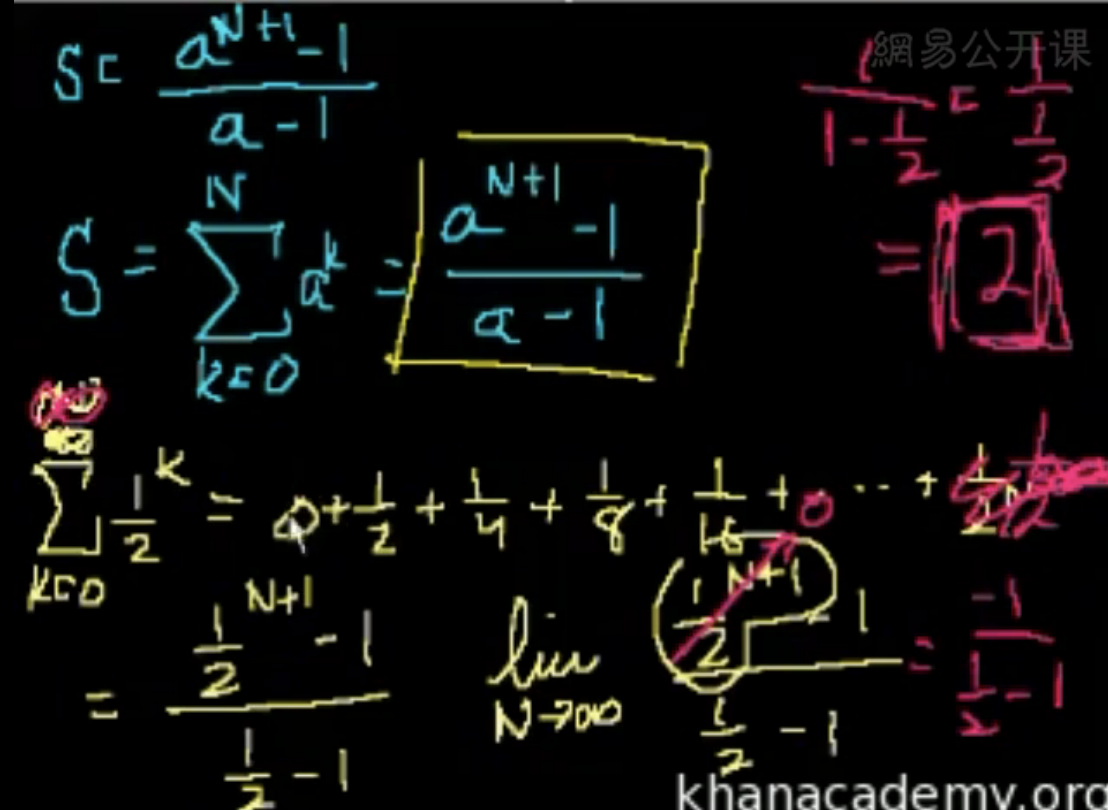 網易公开课
S = (a^(N+1) - 1) / (a - 1)
1 / (1 - 1/2) = 1 / (1/2)
= 2
S = ∑_{k=0}^{N} a^k = (a^(N+1) - 1) / (a - 1)
∑_{k=0}^{∞} 1/2^k = 0 + 1/2 + 1/4 + 1/8 + 1/16 + ... +
= (1/2^(N+1) - 1) / (1/2 - 1)
lim N→∞ (1/2^(N+1) - 1) / (1/2 - 1) = -1 / (1/2 - 1)
0
khanacademy.org